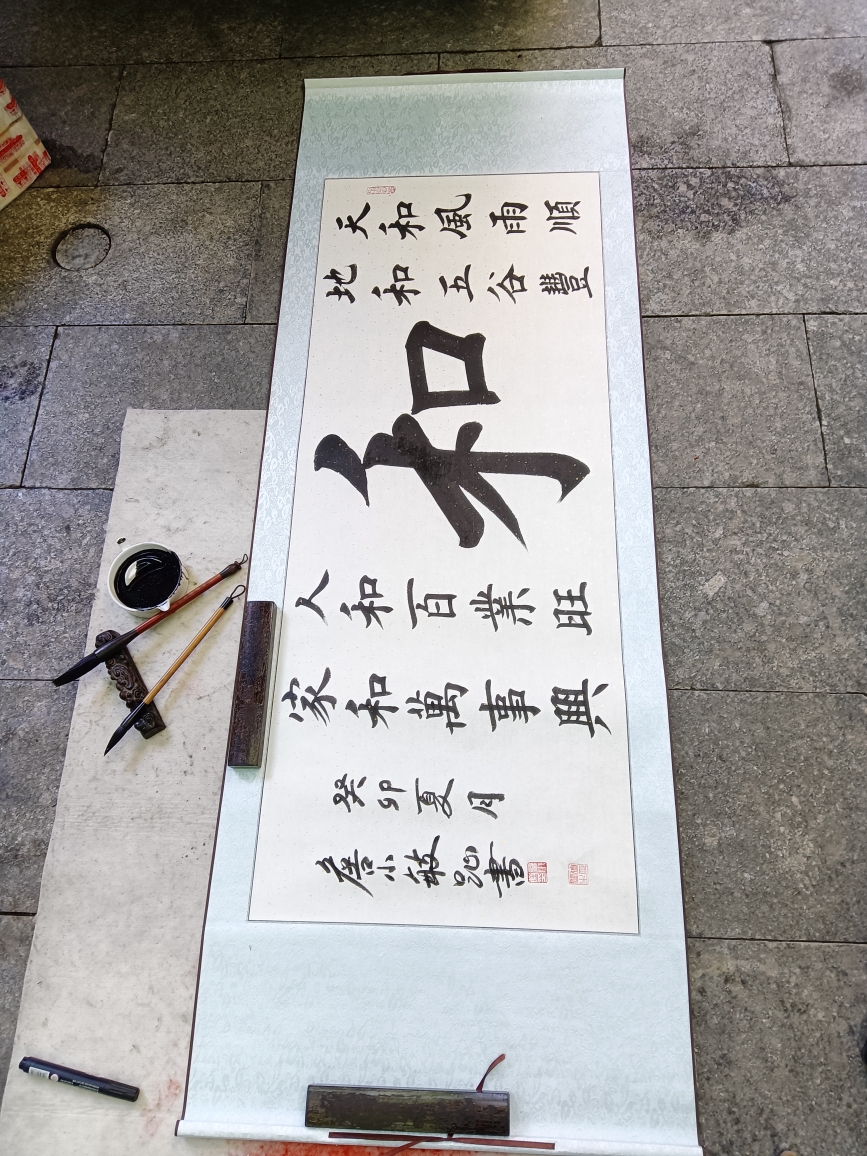 天和風雨順
地和五谷豐
和
人和百業旺
家和萬事興
癸卯夏月
小敏書